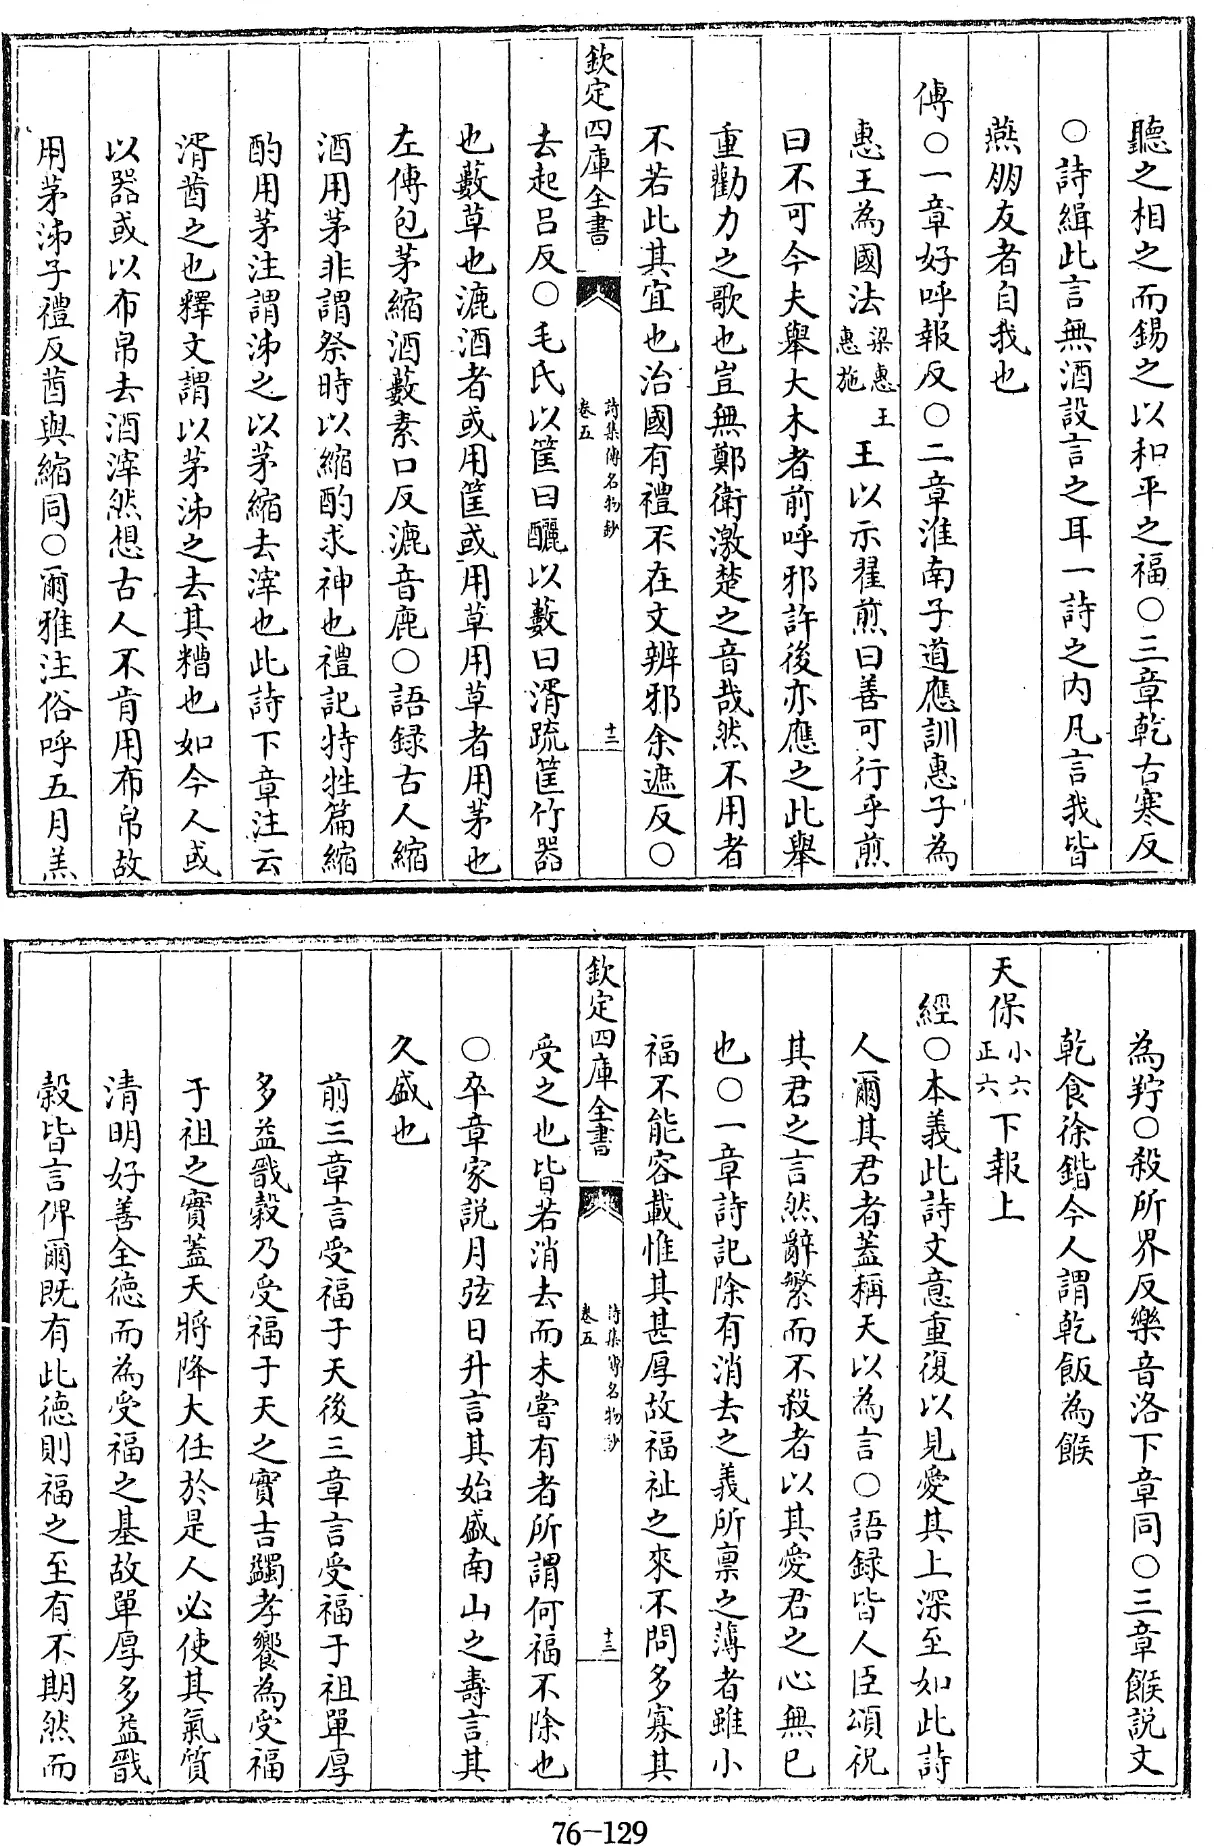 聽之相之而錫之以和平之福○三章乾古寒反
○詩緝此言無酒設言之耳一詩之内凡言我皆
燕朋友者自我也
傳○一章好呼報反○二章淮南子道應訓惠子為
惠王為國法梁惠王惠施王以示翟煎曰善可行乎煎
曰不可今夫舉大木者前呼邪許後亦應之此舉
重勸力之歌也豈無鄭衛激楚之音哉然不用者
不若此其宜也治國有禮不在文辨邪余遮反○
欽定四庫全書
詩集傳名物鈔
卷五
十二
去起吕反○毛氏以筐曰釃以藪曰湑疏筐竹器
也藪草也漉酒者或用筐或用草用草者用茅也
左傳包茅縮酒藪素口反漉音鹿○語録古人縮
酒用茅非謂祭時以縮酌求神也禮記特牲篇縮
酌用茅注謂泲之以茅縮去滓也此詩下章注云
湑莤之也釋文謂以茅泲之去其糟也如今人或
以器或以布帛去酒滓然想古人不肯用布帛故
用茅泲子禮反莤與縮同○爾雅注俗呼五月羔
為羜○殺所界反樂音洛下章同○三章餱説文
乾食徐鍇今人謂乾飯為餱
天保小六正六下報上
經○本義此詩文意重復以見愛其上深至如此詩
人爾其君者蓋稱天以為言○語録皆人臣頌祝
其君之言然辭繁而不殺者以其愛君之心無已
也○一章詩記除有消去之義所禀之薄者雖小
福不能容載惟其甚厚故福祉之來不問多寡其
欽定四庫全書
詩集傳名物鈔
卷五
十三
受之也皆若消去而未嘗有者所謂何福不除也
○卒章家説月弦日升言其始盛南山之壽言其
久盛也
前三章言受福于天後三章言受福于祖單厚
多益戩穀乃受福于天之實吉蠲孝饗為受福
于祖之實蓋天將降大任於是人必使其氣質
清明好善全徳而為受福之基故單厚多益戩
穀皆言俾爾既有此徳則福之至有不期然而
76-129